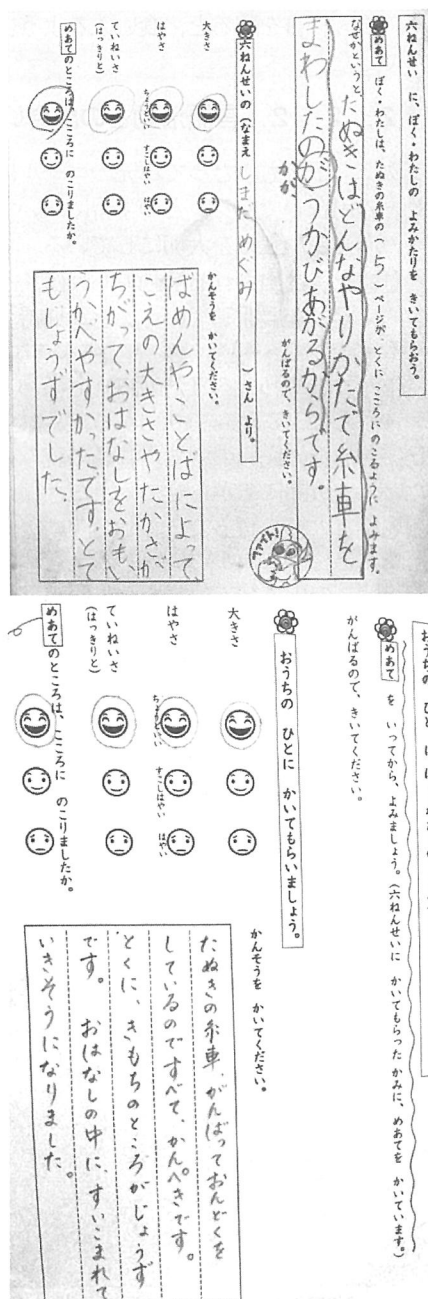 六ねんせい に、ぼく・わたしの よみかたりを きいてもらおう。
めあて ぼく・わたしは、たぬきの糸車の(15)ページが とくに こころにのこるように よみます。
なぜかというと、たぬきはどんなやりかたで糸車を
まわしたのが、
かが
うかびあがるからです。
がんばるので、きいてください。
ファイト!
六ねんせいの(なまえ しまだ めぐみ )さん より。
大きさ
はやさ
ちょうどいい すこしはやい はやい
ていねいさ
(はっきりと)
めあてのところは、こころに のこりましたか。
かんそうを かいてください。
ばめんやことばによって
こえの大きさやたかさが
ちがって、おはなしをおもい
うかべやすかったです。とて
もじょうずでした。
めあて を いってから、よみましょう。(六ねんせいに かいてもらった かみに、めあてを かいています。)
がんばるので、きいてください。
おうちの ひとに かいてもらいましょう。
大きさ
はやさ
ちょうどいい すこしはやい はやい
ていねいさ
(はっきりと)
めあてのところは、こころに のこりましたか。
かんそうを かいてください。
たぬきの糸車、がんばっておんどくを
しているのですべて、かんぺきです。
とくに、きもちのところがじょうず
です。 おはなしの中に、すいこまれて
いきそうになりました。